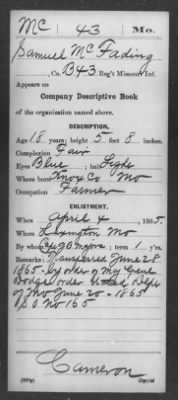 Mc 43 Mo.
Samuel McFading
, Co. B 43 Reg't Missouri Inf.
Appears on
Company Descriptive Book
of the organization named above.
DESCRIPTION.
Age 18 years; height 5 feet 8 inches.
Complexion Fair
Eyes Blue; hair Light
Where born Knox Co Mo
Occupation Farmer
ENLISTMENT.
When April 4, 1865.
Where Lexington Mo
By whom; term 1 y'rs.
Remarks: Transferred June 28
1865 by order of Maj Genl
Dodge order Dep
of Mo June 20 - 1865
S.O. No 165
Cameron
Copyist